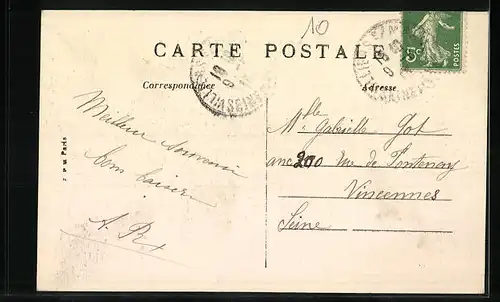 10
CARTE POSTALE
Correspondance
Adresse
5c
POSTES
Meilleur souvenir
bon baiser
A. R
Mlle Gabrielle Got
anc 200 Rue de Fontenay
Vincennes
Seine